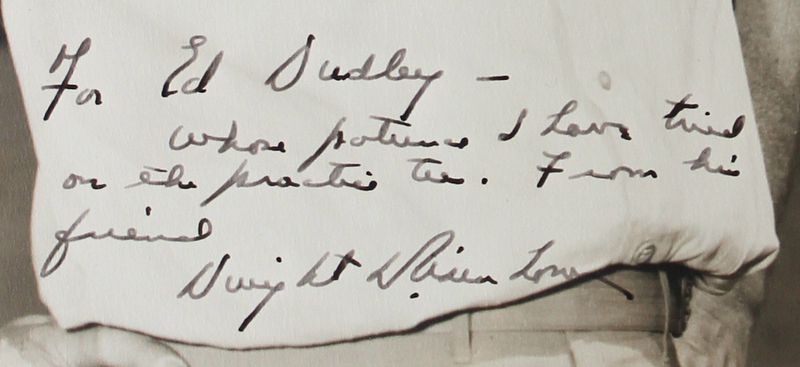 For Ed Dudley —
whose patience I have tried
on the practice tee. From his
friend
Dwight D Eisenhower